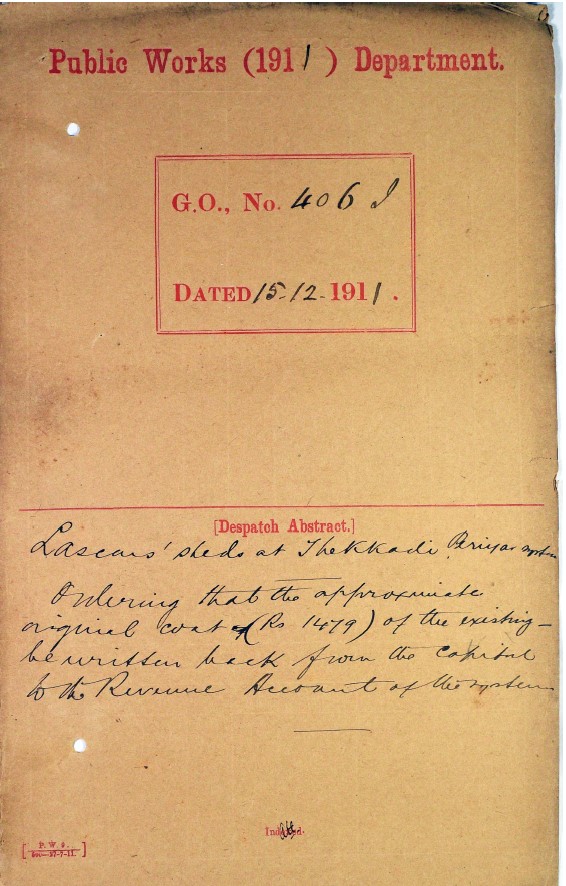 Public Works (1911) Department.
G.O., No. 406 I
DATED 15-12-1911.
[Despatch Abstract.]
Lascars' sheds at Thekkadi Periyar system
Ordering that the approximate
original cost (Rs 1479) of the existing —
be written back from the capital
to the Revenue Account of the system
Indexed.
P. W. 9.